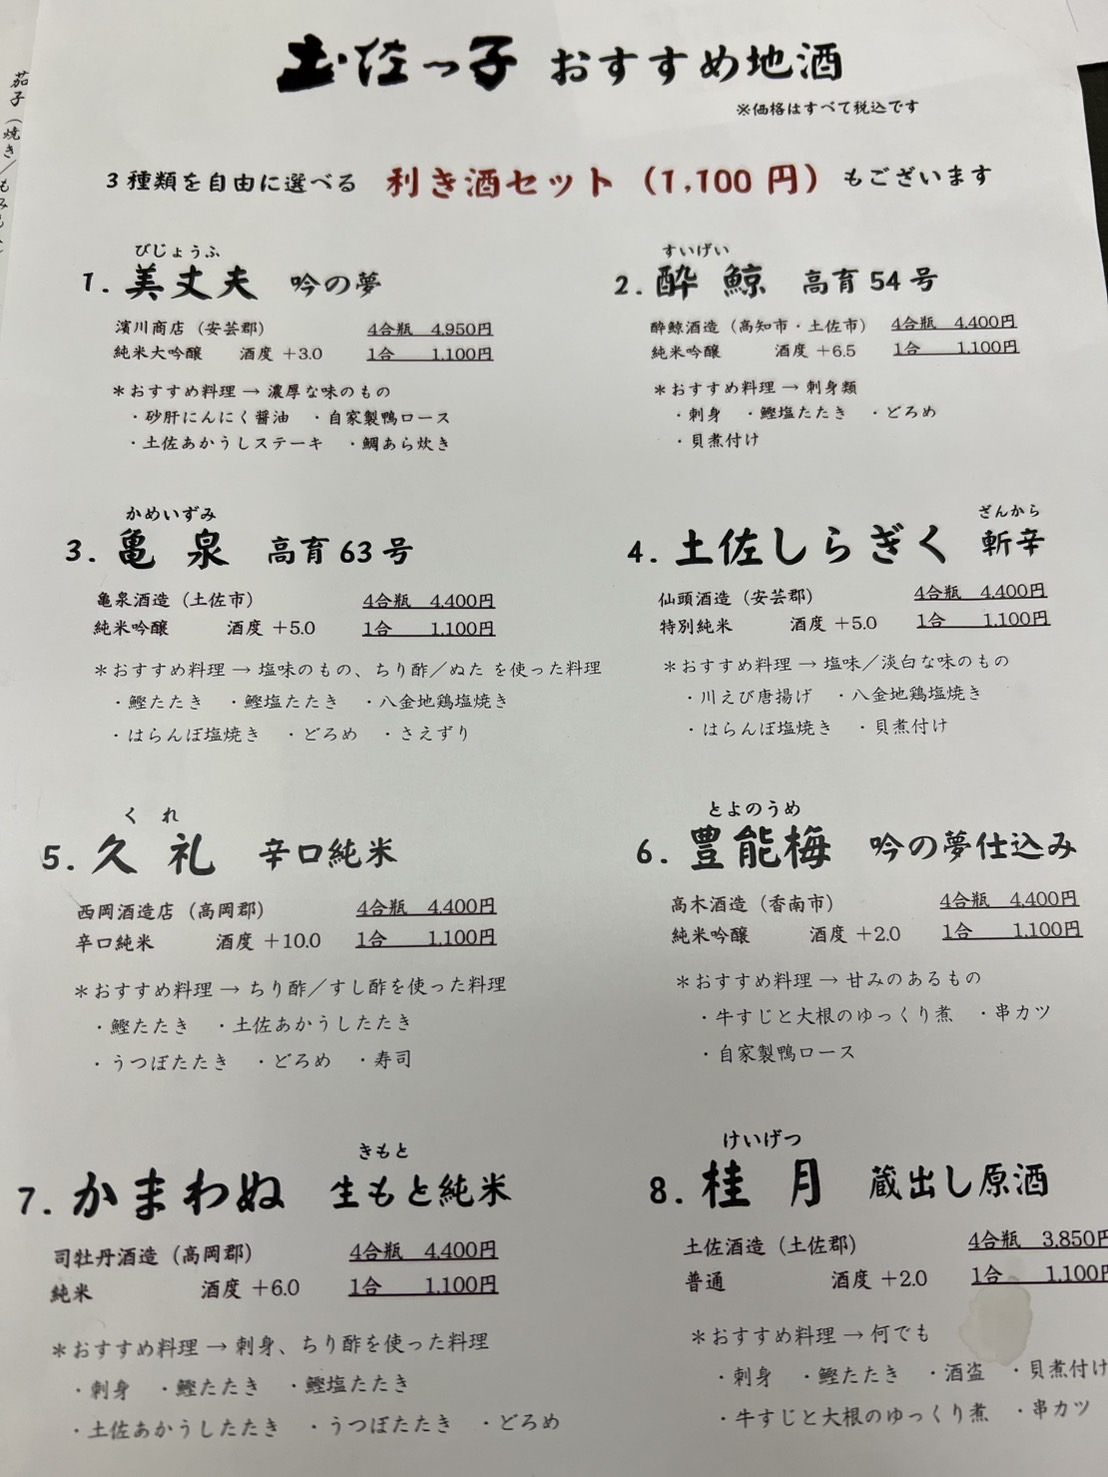 土佐っ子 おすすめ地酒
※価格はすべて税込です
3種類を自由に選べる 利き酒セット（1,100円）もございます
びじょうふ
1. 美丈夫 吟の夢
濱川商店（安芸郡） 4合瓶 4,950円
純米大吟醸 酒度 +3.0 1合 1,100円
＊おすすめ料理 → 濃厚な味のもの
・砂肝にんにく醤油 ・自家製鴨ロース
・土佐あかうしステーキ ・鯛あら炊き
すいげい
2. 酔鯨 高育54号
酔鯨酒造（高知市・土佐市） 4合瓶 4,400円
純米吟醸 酒度 +6.5 1合 1,100円
＊おすすめ料理 → 刺身類
・刺身 ・鰹塩たたき ・どろめ
・貝煮付け
かめいずみ
3. 亀泉 高育63号
亀泉酒造（土佐市） 4合瓶 4,400円
純米吟醸 酒度 +5.0 1合 1,100円
＊おすすめ料理 → 塩味のもの、ちり酢／ぬた を使った料理
・鰹たたき ・鰹塩たたき ・八金地鶏塩焼き
・はらんぼ塩焼き ・どろめ ・さえずり
ざんから
4. 土佐しらぎく 斬辛
仙頭酒造（安芸郡） 4合瓶 4,400円
特別純米 酒度 +5.0 1合 1,100円
＊おすすめ料理 → 塩味／淡白な味のもの
・川えび唐揚げ ・八金地鶏塩焼き
・はらんぼ塩焼き ・貝煮付け
くれ
5. 久礼 辛口純米
西岡酒造店（高岡郡） 4合瓶 4,400円
辛口純米 酒度 +10.0 1合 1,100円
＊おすすめ料理 → ちり酢／すし酢を使った料理
・鰹たたき ・土佐あかうしたたき
・うつぼたたき ・どろめ ・寿司
とよのうめ
6. 豊能梅 吟の夢仕込み
高木酒造（香南市） 4合瓶 4,400円
純米吟醸 酒度 +2.0 1合 1,100円
＊おすすめ料理 → 甘みのあるもの
・牛すじと大根のゆっくり煮 ・串カツ
・自家製鴨ロース
きもと
7. かまわぬ 生もと純米
司牡丹酒造（高岡郡） 4合瓶 4,400円
純米 酒度 +6.0 1合 1,100円
＊おすすめ料理 → 刺身、ちり酢を使った料理
・刺身 ・鰹たたき ・鰹塩たたき
・土佐あかうしたたき ・うつぼたたき ・どろめ
けいげつ
8. 桂月 蔵出し原酒
土佐酒造（土佐郡） 4合瓶 3,850円
普通 酒度 +2.0 1合 1,100円
＊おすすめ料理 → 何でも
・刺身 ・鰹たたき ・酒盗 ・貝煮付け
・牛すじと大根のゆっくり煮 ・串カツ
茄子（焼き／もみ